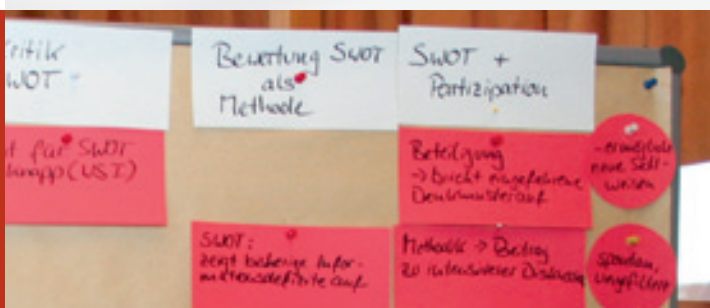 Kritik
SWOT
Bewertung SWOT
als
Methode
SWOT +
Partizipation
für SWOT
knapp (UST)
Beteiligung
→ bricht eingefahrene
Denkmuster auf
- ermöglicht
neue Sicht-
weisen
SWOT:
zeigt bisherige Infor-
mationsdefizite auf
Methodik → Beitrag
zu intensiverer Diskussion
spontan,
ungefiltert